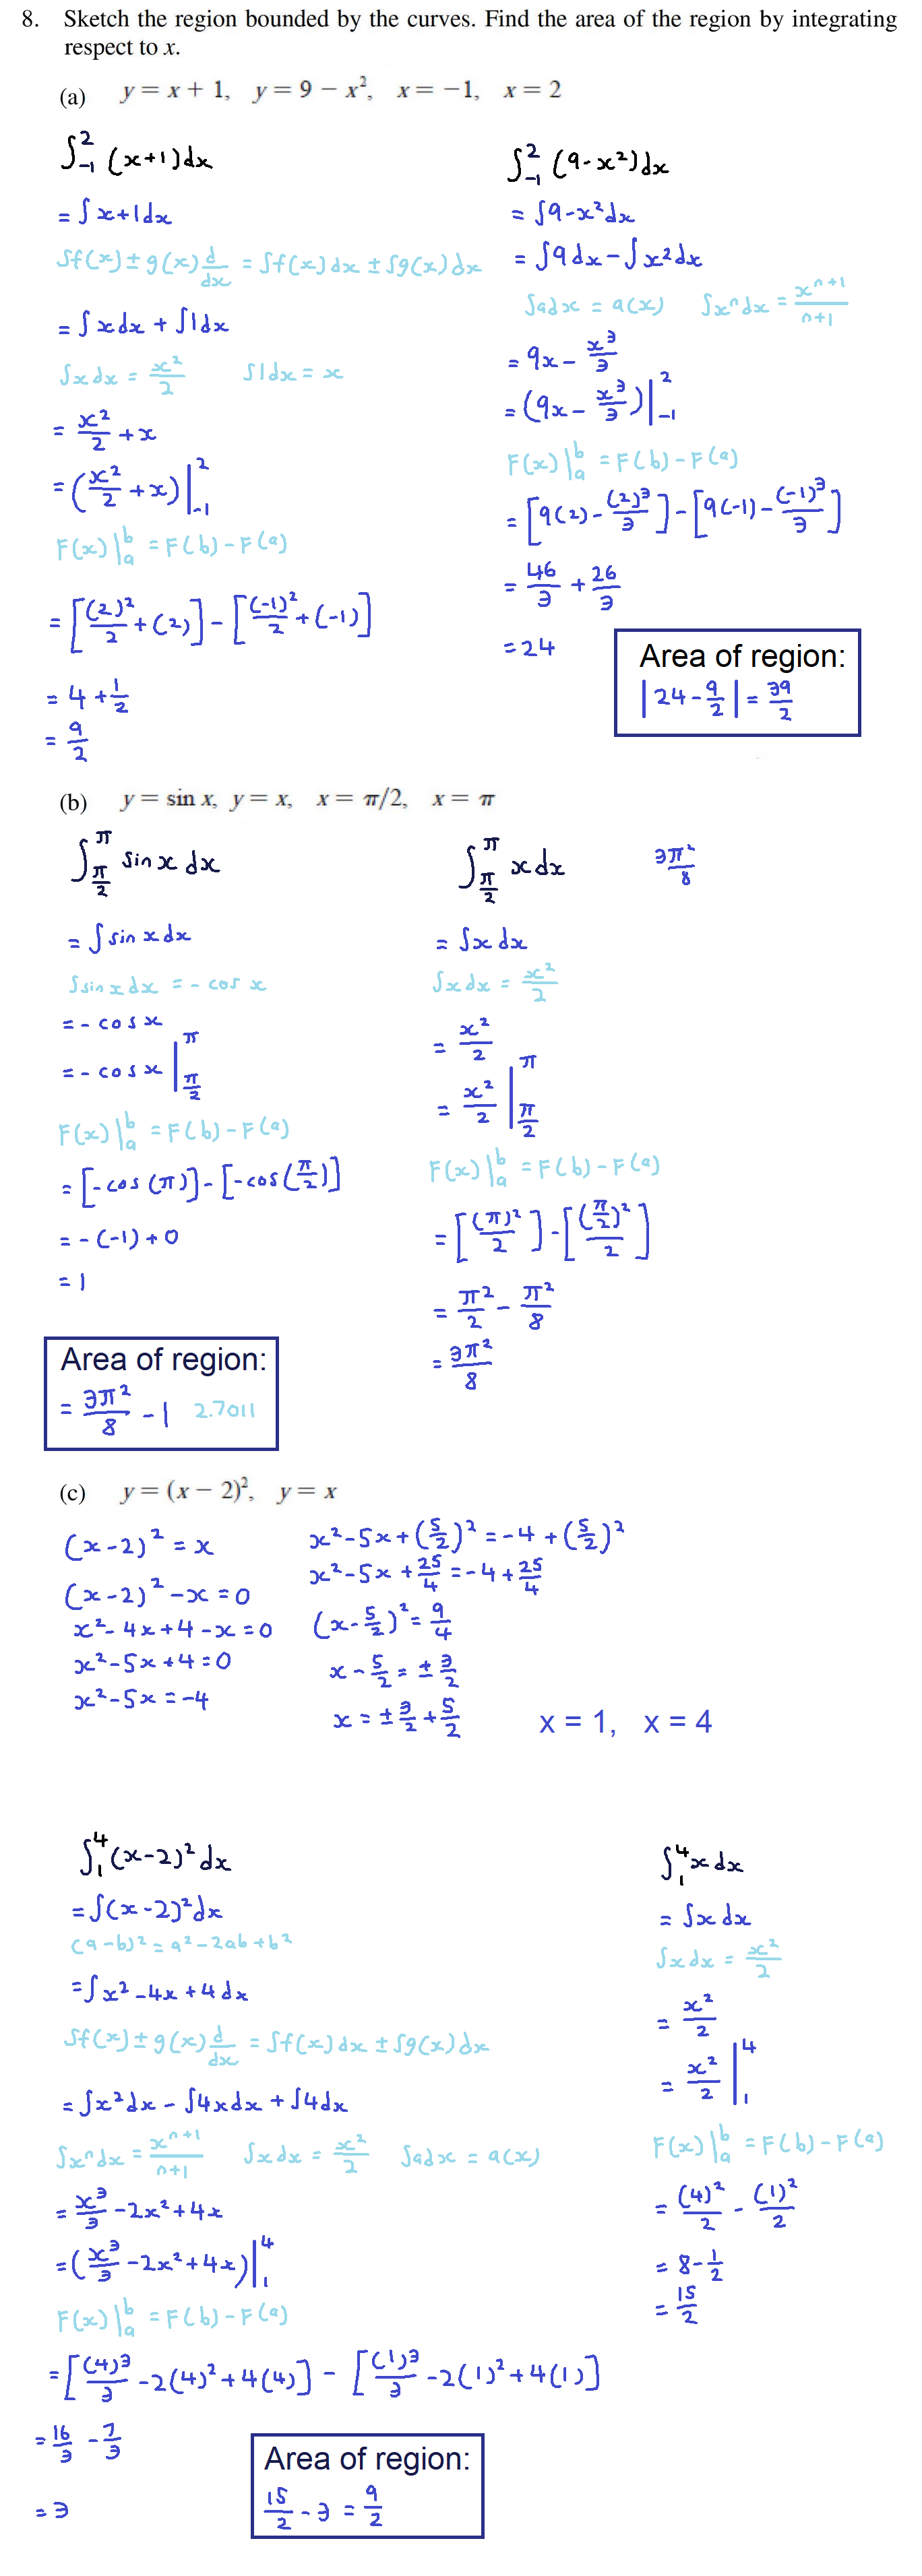 8. Sketch the region bounded by the curves. Find the area of the region by integrating
respect to x.
(a) y = x + 1, y = 9 − x², x = −1, x = 2
∫₋₁² (x+1)dx
= ∫x+1dx
∫f(x)±g(x) d/dx = ∫f(x)dx ± ∫g(x)dx
= ∫xdx + ∫1dx
∫xdx = x²/2 ∫1dx = x
= x²/2 + x
= (x²/2 + x)|₋₁²
F(x)|ₐᵇ = F(b) - F(a)
= [(2)²/2 + (2)] - [(-1)²/2 + (-1)]
= 4 + 1/2
= 9/2
∫₋₁² (9-x²)dx
= ∫9-x²dx
= ∫9dx - ∫x²dx
∫adx = a(x) ∫xⁿdx = xⁿ⁺¹/n+1
= 9x - x³/3
= (9x - x³/3)|₋₁²
F(x)|ₐᵇ = F(b) - F(a)
= [9(2) - (2)³/3] - [9(-1) - (-1)³/3]
= 46/3 + 26/3
= 24
Area of region:
|24 - 9/2| = 39/2
(b) y = sin x, y = x, x = π/2, x = π
∫_{π/2}^{π} sin x dx
= ∫sin x dx
∫sin x dx = -cos x
= -cos x
= -cos x |_{π/2}^{π}
F(x)|ₐᵇ = F(b) - F(a)
= [-cos(π)] - [-cos(π/2)]
= -(-1) + 0
= 1
Area of region:
= 3π²/8 - 1 2.7011
∫_{π/2}^{π} x dx 3π²/8
= ∫x dx
∫xdx = x²/2
= x²/2
= x²/2 |_{π/2}^{π}
F(x)|ₐᵇ = F(b) - F(a)
= [(π)²/2] - [(π/2)²/2]
= π²/2 - π²/8
= 3π²/8
(c) y = (x − 2)², y = x
(x-2)² = x
(x-2)² - x = 0
x² - 4x + 4 - x = 0
x² - 5x + 4 = 0
x² - 5x = -4
x² - 5x + (5/2)² = -4 + (5/2)²
x² - 5x + 25/4 = -4 + 25/4
(x - 5/2)² = 9/4
x - 5/2 = ± 3/2
x = ± 3/2 + 5/2
x = 1, x = 4
∫₁⁴ (x-2)² dx
= ∫(x-2)²dx
(a-b)² = a² - 2ab + b²
= ∫x² - 4x + 4 dx
∫f(x)±g(x) d/dx = ∫f(x)dx ± ∫g(x)dx
= ∫x²dx - ∫4xdx + ∫4dx
∫xⁿdx = xⁿ⁺¹/n+1 ∫xdx = x²/2 ∫adx = a(x)
= x³/3 - 2x² + 4x
= (x³/3 - 2x² + 4x)|₁⁴
F(x)|ₐᵇ = F(b) - F(a)
= [(4)³/3 - 2(4)² + 4(4)] - [(1)³/3 - 2(1)² + 4(1)]
= 16/3 - 7/3
= 3
∫₁⁴ x dx
= ∫x dx
∫xdx = x²/2
= x²/2
= x²/2 |₁⁴
F(x)|ₐᵇ = F(b) - F(a)
= (4)²/2 - (1)²/2
= 8 - 1/2
= 15/2
Area of region:
15/2 - 3 = 9/2